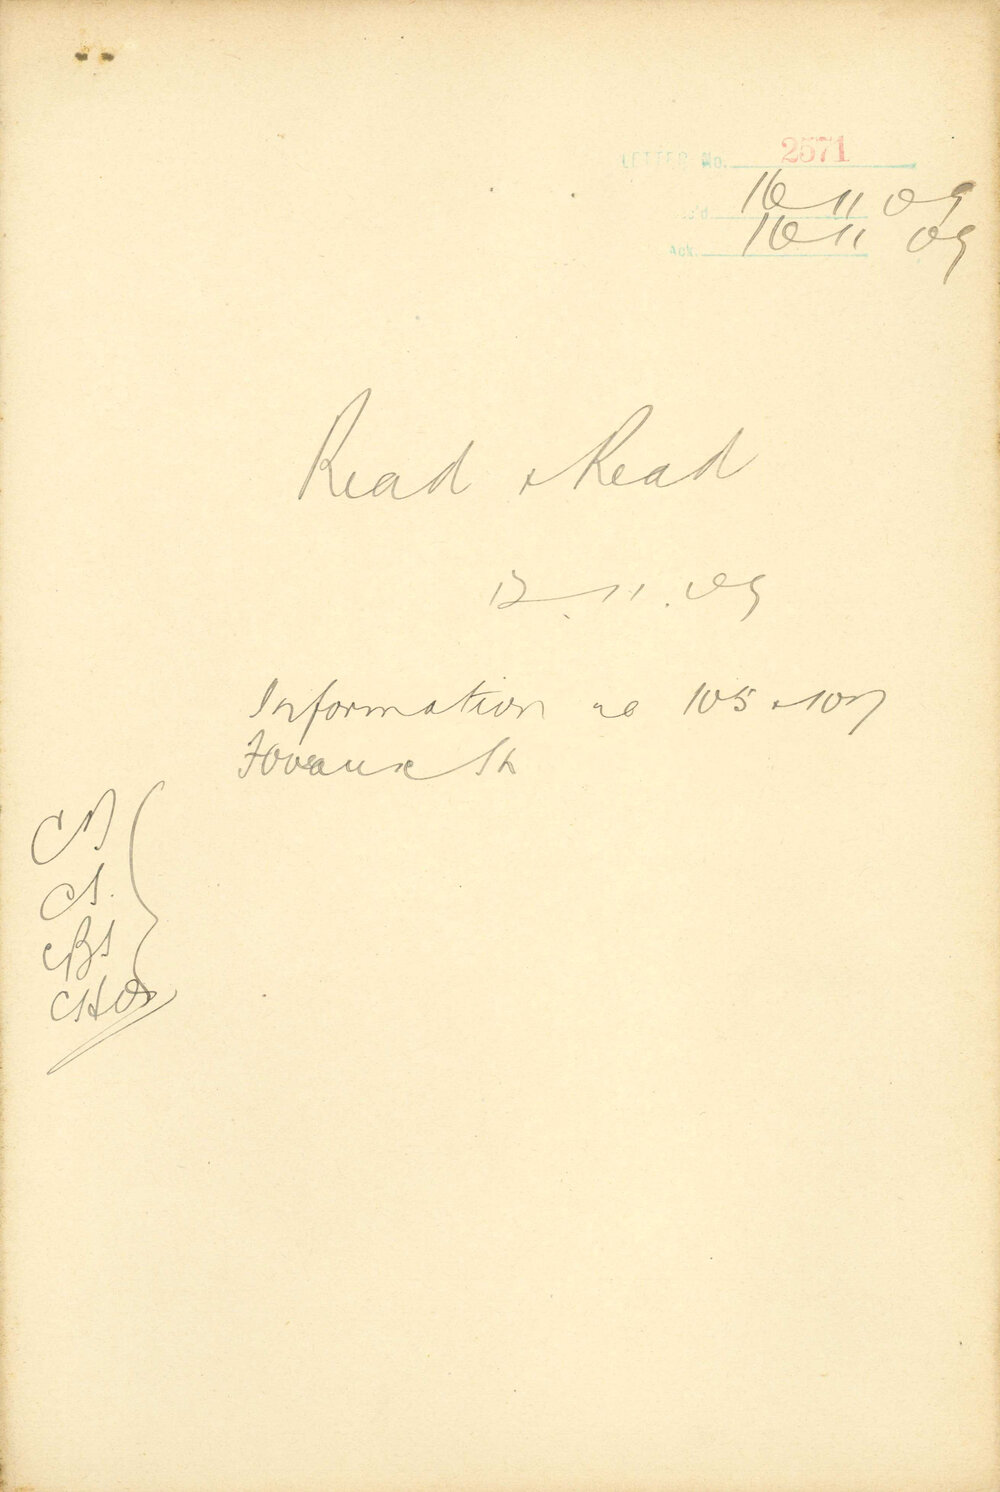 LETTER No. 2571
Rec'd. 16 11 09
Ack. 16 11 09
Read & Read
12.11.09
Information re 105 & 107
Foveaux St
CS.
CBS